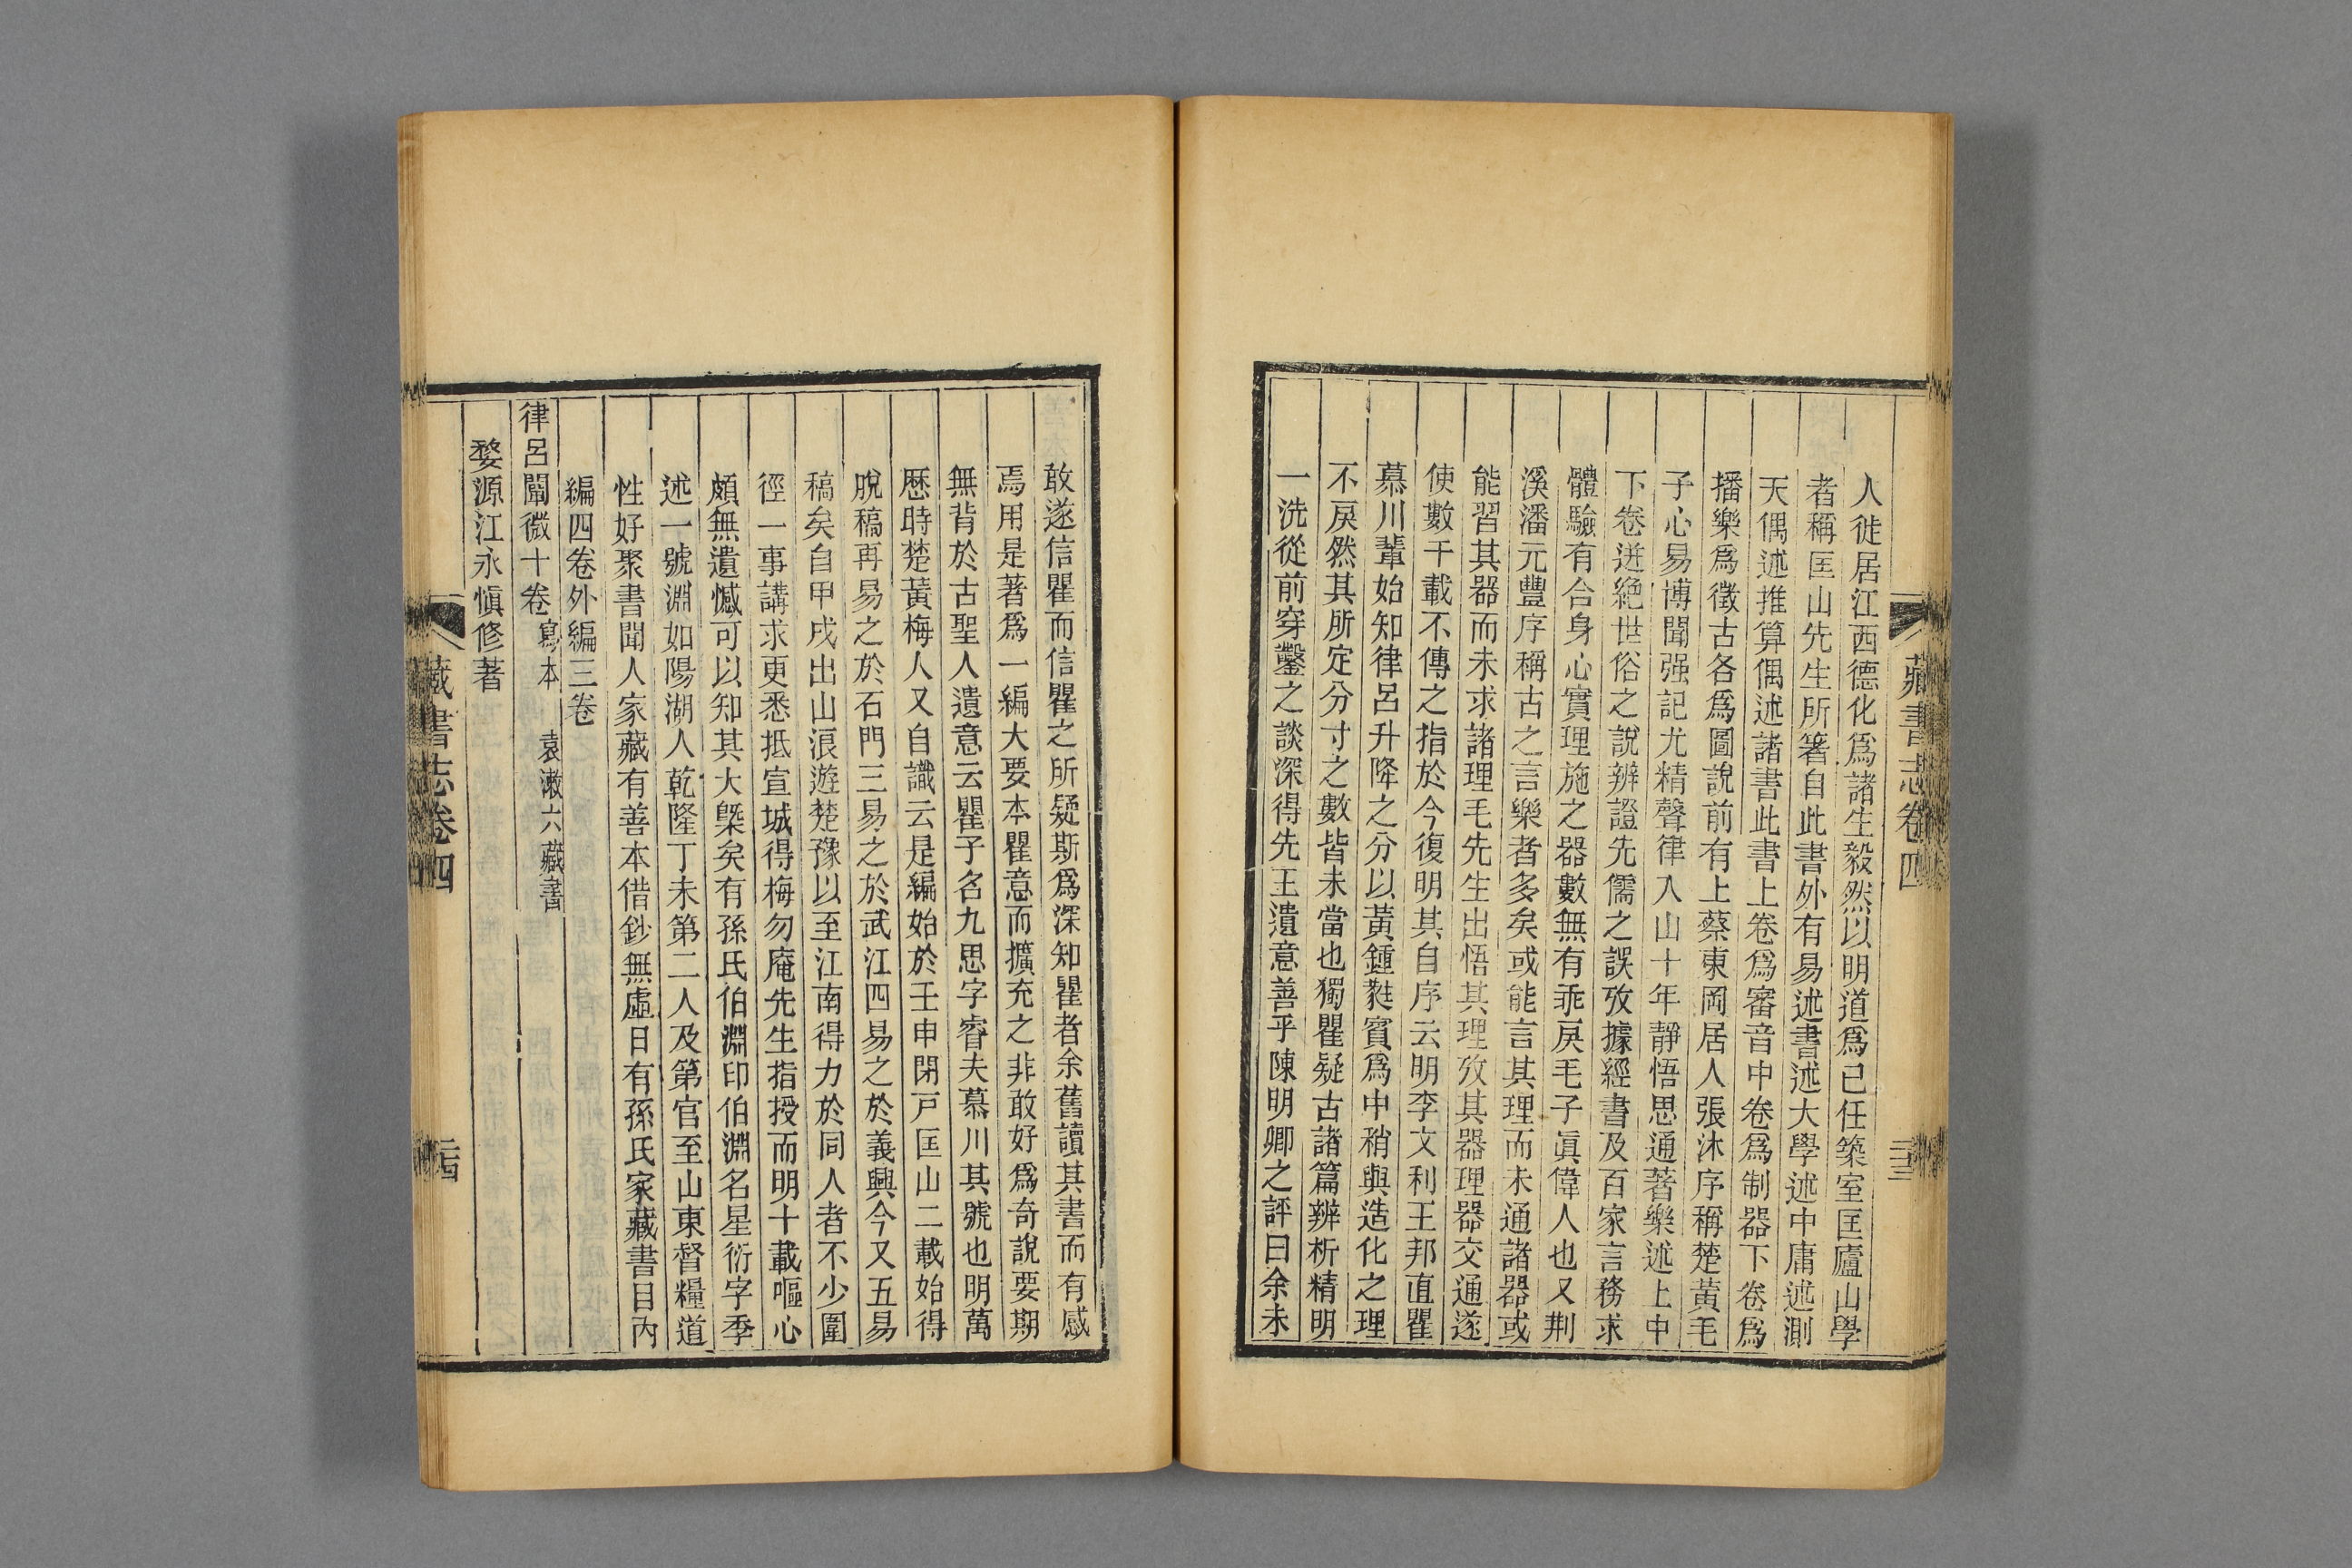 藏書志卷四
二十三
人徙居江西德化爲諸生毅然以明道爲己任築室匡廬山學
者稱匡山先生所箸自此書外有易述書述大學述中庸述測
天偶述推算偶述諸書此書上卷爲審音中卷爲制器下卷爲
播樂爲徵古各爲圖說前有上蔡東岡居人張沐序稱楚黃毛
子心易博聞强記尤精聲律入山十年靜悟思通著樂述上中
下卷迸絕世俗之說辨證先儒之誤攷據經書及百家言務求
體驗有合身心實理施之器數無有乖戾毛子眞偉人也又荆
溪潘元豐序稱古之言樂者多矣或能言其理而未通諸器或
能習其器而未求諸理毛先生出悟其理攷其器理器交通遂
使數千載不傳之指於今復明其自序云明李文利王邦直瞿
慕川輩始知律呂升降之分以黃鍾蕤賓爲中稍與造化之理
不戾然其所定分寸之數皆未當也獨瞿疑古諸篇辨析精明
一洗從前穿鑿之談深得先王遺意善乎陳明卿之評曰余未
敢遂信瞿而信瞿之所疑斯爲深知瞿者余舊讀其書而有感
焉用是著爲一編大要本瞿意而擴充之非敢好爲奇說要期
無背於古聖人遺意云瞿子名九思字睿夫慕川其號也明萬
厯時楚黃梅人又自識云是編始於壬申閉戸匡山二載始得
脫稿再易之於石門三易之於武江四易之於義興今又五易
稿矣自甲戌出山浪遊楚豫以至江南得力於同人者不少圍
徑一事講求更悉抵宣城得梅勿庵先生指授而明十載嘔心
頗無遺憾可以知其大槩矣有孫氏伯淵印伯淵名星衍字季
述一號淵如陽湖人乾隆丁未第二人及第官至山東督糧道
性好聚書聞人家藏有善本借鈔無虛日有孫氏家藏書目內
編四卷外編三卷
律呂闡微十卷 寫本 袁漱六藏書
婺源江永愼修著
藏書志卷四
二十四